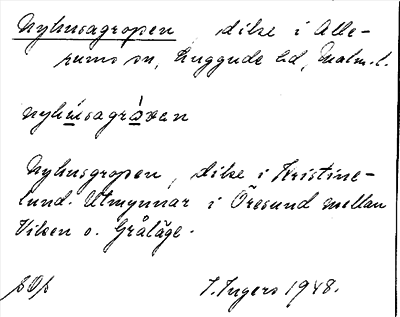 Nyhusagropen, dike i Alle-
rums sn, Luggude hd, Malm. l.
nyhùsagràven
Nyhusgropen, dike i Kristine-
lund. Utmynnar i Öresund mellan
Viken o. Gråläge.
I. Ingers 1948.